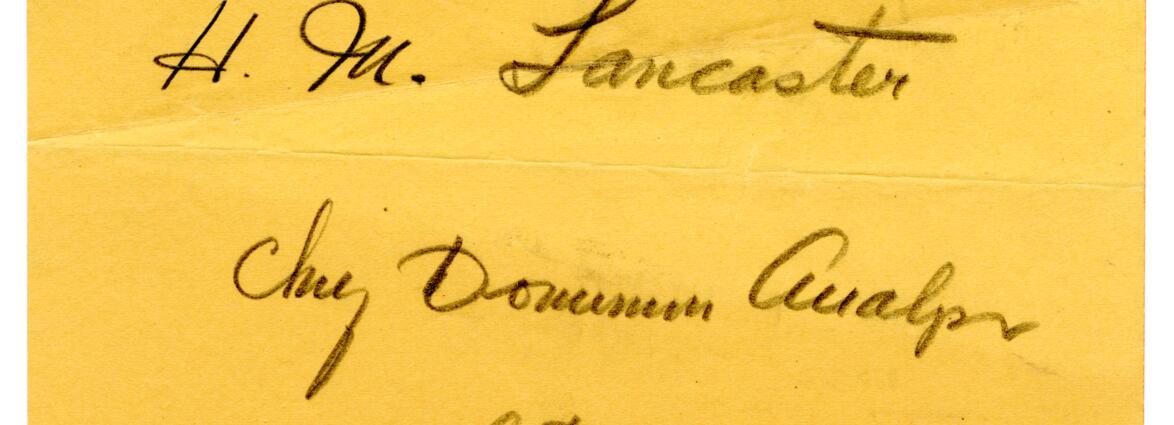 H. M. Lancaster
Chief Dominion Analyst